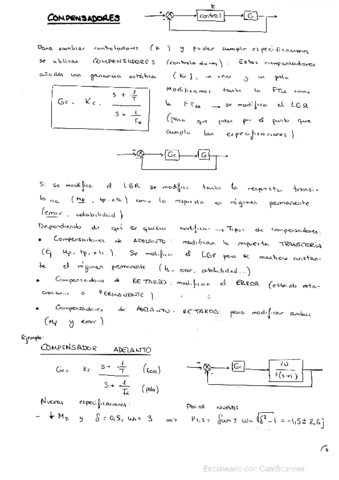 COMPENSADORES
K
control
G
Para cambiar controladores (K) y poder cumplir especificaciones
se utilizan COMPENSADORES (controladores). Estos compensadores
añaden una ganancia estática (Kc), un cero y un polo
Gc = Kc · (s + 1/T) / (s + 1/Tα)
Modificamos tanto la FTLA como
la FTLC → se modifica el LGR
(para que pase por el punto que
cumpla las especificaciones)
Gc
G
Si se modifica el LGR se modifica tanto la respuesta transito
ria (Mp, tp, etc) como la respuesta en régimen permanente
(error, estabilidad)
Dependiendo de qué se quiera modificar → Tipos de compensadores:
• Compensadores de ADELANTO: modifican la respuesta TRANSITORIA
(Ej Mp, tp, etc.). Se modifica el LGR pero se mantiene constan
te el régimen permanente (ts, error, estabilidad...)
• Compensadores de RETARDO: modifican el ERROR (estado esta
cionario o PERMANENTE).
• Compensadores de ADELANTO-RETARDO: para modificar ambos
(Mp y error)
Ejemplo:
COMPENSADOR ADELANTO
Gc = Kc (s + 1/T) (cero)
s + 1/Tα (polo)
Gc
10
s(s+1)
Nuevas especificaciones:
POLOS NUEVOS
- ↓ Mp y δ = 0,5, ωn = 3 ⇒ P1,2 = δωn ± ωn √δ²-1 = -1,5 ± 2,6j
Escaneado con CamScanner